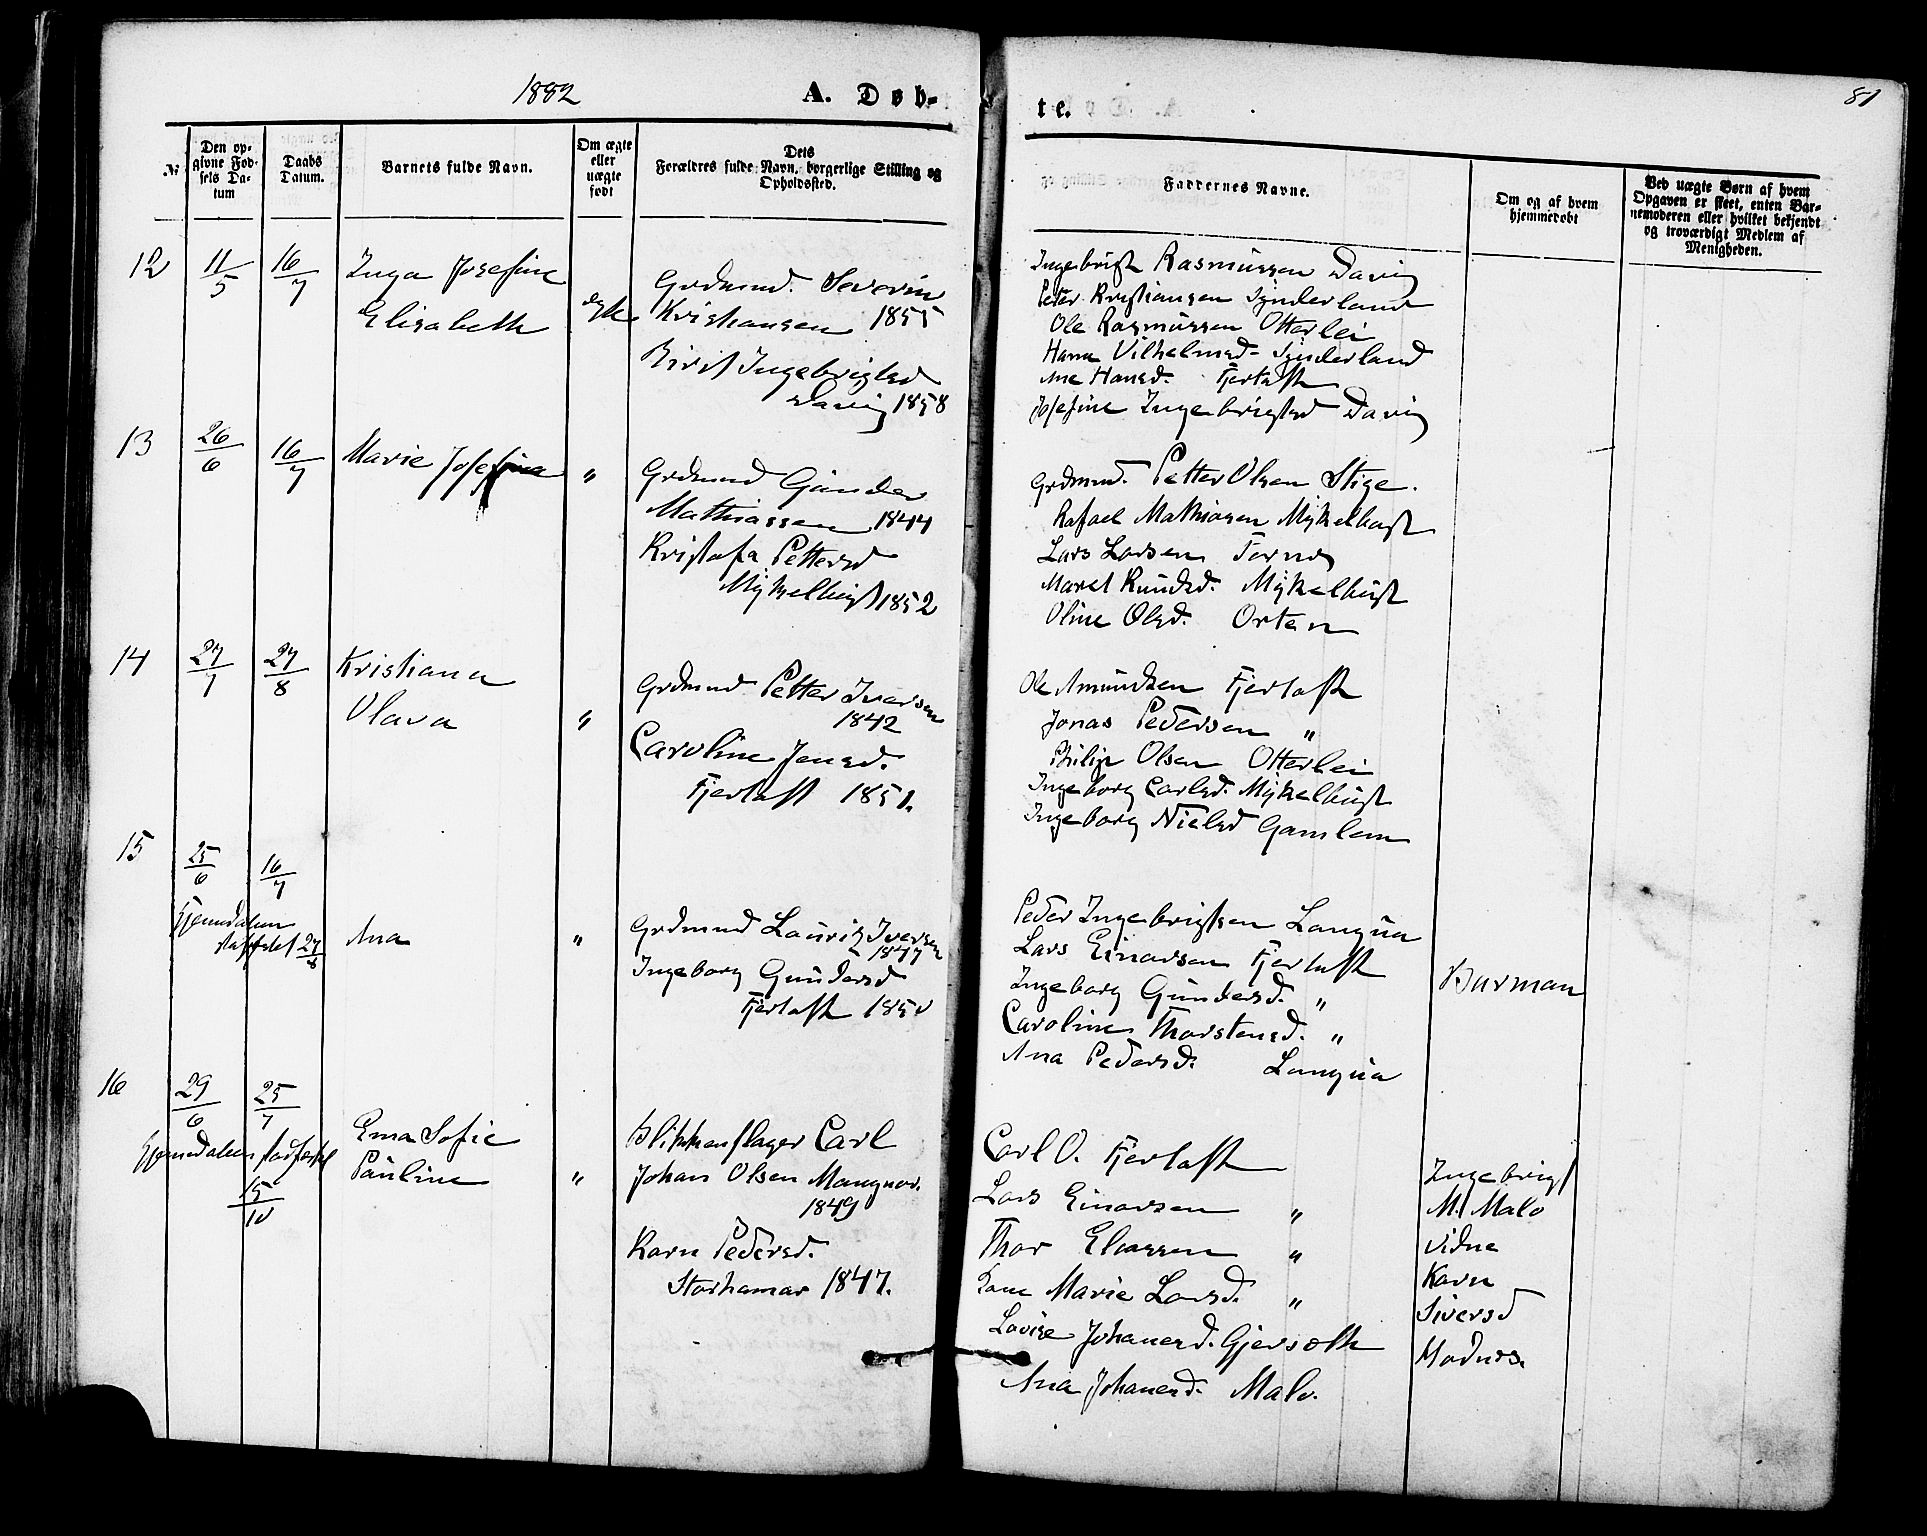 1882
A. Døb-
te.
81
№
Den op-
givne Fød-
sels Da-
tum
Daabs
Datum.
Barnets fulde Navn.
Om ægte
eller
uægte
født
Dets
Forældres fulde Navn, borgerlige Stilling og
Opholdssted.
Faddernes Navne.
Om og af hvem
hjemmedøbt
Ved uægte Børn af hvem
Opgaven er skeet, enten Bar-
nemoderen eller hvilket bekjendt
og troværdigt Medlem af
Menigheden.
12
11/5
16/7
Inga Josefine
Elisabeth
egte
Grdmnd. Severin
Kristiansen 1855
Birit Ingebrigtsd
Davig 1858
Ingebrigt Rasmussen Davig
Peter Kristiansen Synderland
Ole Rasmussen Otterlei
Hana Vilhelmsd. Synderland
Ane Hansd. Fjertoft
Josefine Ingebrigtsd Davig
13
26/6
16/7
Marie Josefina
"
Grdmnd Gunder
Mathiassen 1844
Kristofa Pettersd
Mykelbust 1852
Grdmnd. Petter Olsen Stige.
Rafael Mathiasen Myкelbust
Lars Larsen Tornes
Maret Knudsd. Mykelbust
Oline Olsd. Orten
14
27/7
27/8
Kristiana
Olava
"
Grdmnd Petter Iversen
1842
Caroline Jensd.
Fjertoft 1851.
Ole Amundsen Fjertoft
Jonas Pedersen "
Philip Olsen Otterlei
Ingeborg Carlsd. Mykelbust
Ingeborg Nielsd Gamlem
15
25/6
16/7
Hjemdøben
stadfæstet 27/8
Ana
"
Grdmnd Lauritz Iversen
1847
Ingeborg Gundersd
Fjertoft 1850
Peder Ingebrigtsen Langua
Lars Einarsen Fjertoft
Ingeborg Gundersd. "
Caroline Thorstensd. "
Ana Pedersd. Langua
Burman
16
29/6
25/7
Hjemdøben stadfæstet
15/10
Ema Sofie
Pauline
"
Blikkenslager Carl
Johan Olsen Mangnor.
1849
Karn Pedersd.
Storhamar 1847.
Carl O. Fjertoft
Lars Einarsen "
Thor Eliassen "
Marie Larsd. "
Lovise Johanesd. Gjersæth
Ana Johanesd. Malo.
Ingebrigt
M. Malo
Vidne
Karn
Siversd
Modnes.